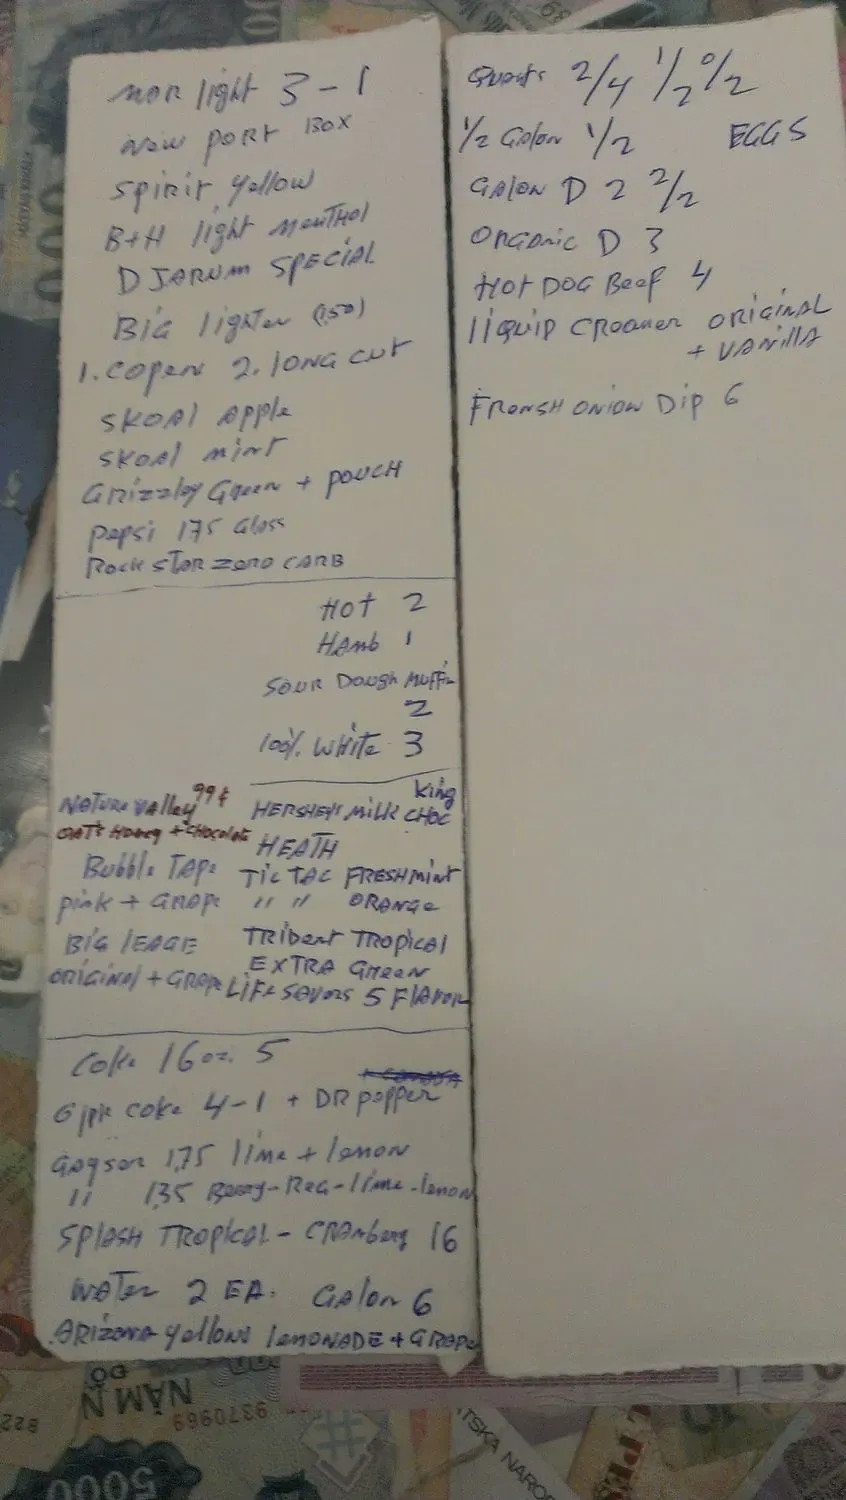 MOR light 3-1
NEW PORT BOX
SPIRIT Yellow
B+H light MENTHOL
DJARUM SPECIAL
BIG LIGHTER (1.50)
1. COPEN 2. LONG CUT
SKOAL APPLE
SKOAL MINT
GRIZZLEY GREEN + POUCH
PEPSI 1.75 GLASS
ROCK STAR ZERO CARB
HOT 2
HAMB 1
SOUR DOUGH MUFFIN
2
100% WHITE 3
NATURE VALLEY 99¢
OATS HONEY + CHOCOLATE
BUBBLE TAPE
PINK + GRAPE
BIG LEAGE
ORIGINAL + GRAPE
KING
HERSHEYS MILK CHOC
HEATH
TIC TAC FRESHMINT
" " ORANGE
TRIDENT TROPICAL
EXTRA GREEN
LIFE SAVORS 5 FLAVOR
COKE 16 OZ. 5
6 PK COKE 4-1 + DR PEPPER
GAYSER 1.75 LIME + LEMON
" 1.35 BERRY-REG-LIME-LEMON
SPLASH TROPICAL - CRANBERY 16
WATER 2 EA. GALON 6
ARIZONA YELLOW LEMONADE + GRAPE
QUARTS 2/4 1/2 0/2
1/2 GALON 1/2 EGGS
GALON D 2 2/2
ORGANIC D 3
HOT DOG BEEF 4
LIQUID CREAMER ORIGINAL
+ VANILLA
FRENSH ONION DIP 6
NĂM N
9370969
5000
000
TSKA NAROD